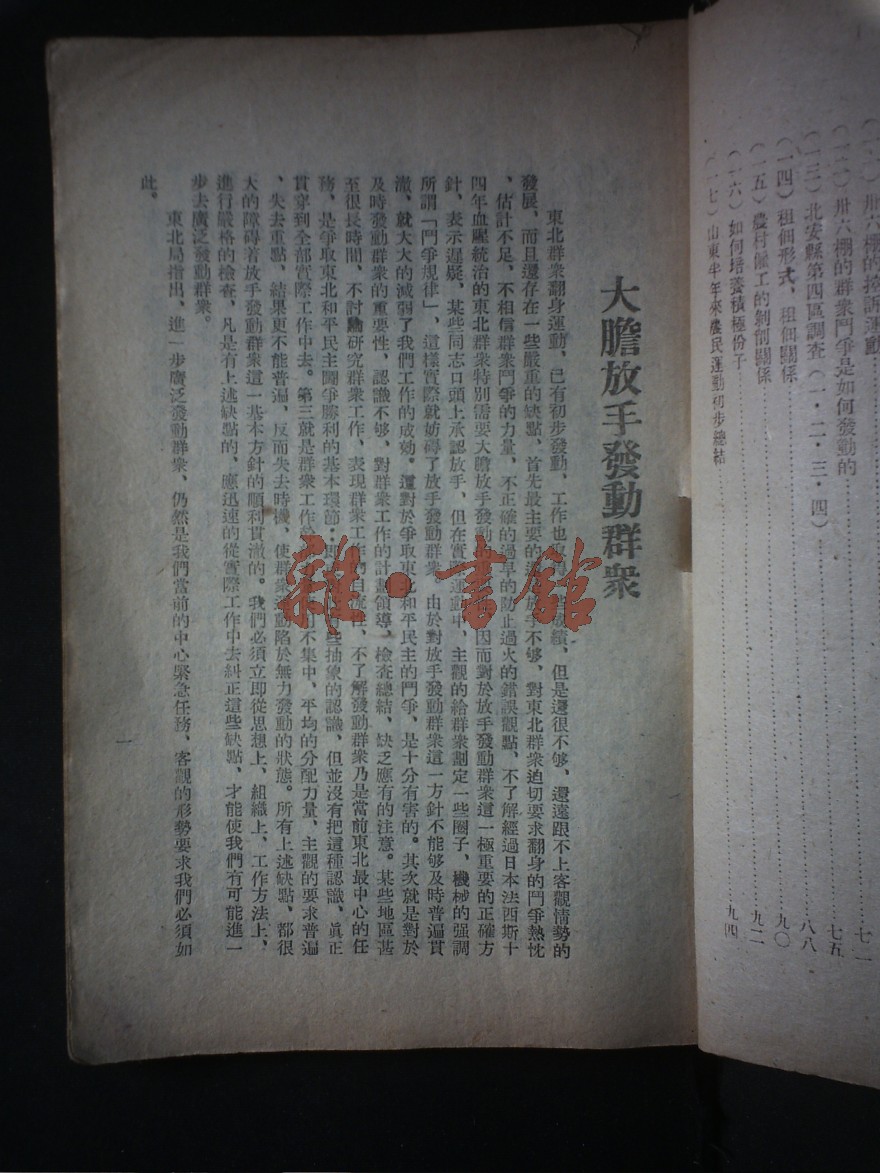 (一三)北安縣第四區調查(一・二・三・四)……八八
(一四)租佃形式,租佃關係……九〇
(一五)農村僱工的剝削關係……九二
(一六)如何培養積極份子
(一七)山東半年來農民運動初步總結……九四
大膽放手發動群衆
東北群衆翻身運動,已有初步發動,工作也成績,但是還很不够,還遠跟不上客觀情勢的
發展,而且還存在一些嚴重的缺點,首先最主要的放手不够,對東北群衆迫切要求翻身的鬥爭熱忱
、估計不足,不相信群衆鬥爭的力量,不正確的過早的防止過火的錯誤觀點,不了解經過日本法西斯十
四年血腥統治的東北群衆特別需要大膽放手發動的因而對於放手發動群衆這一極重要的正確方
針,表示遲疑,某些同志口頭上承認放手,但在實運動中,主觀的給群衆劃定一些圈子,機械的强調
所謂「鬥爭規律」,這樣實際就妨碍了放手發動群衆,由於對放手發動群衆這一方針不能够及時普遍貫
澈,就大大的減弱了我們工作的成効。這對於爭取東北和平民主的鬥爭,是十分有害的。其次就是對於
及時發動群衆的重要性,認識不够,對群衆工作的計劃領導,檢查總結,缺乏應有的注意。某些地區甚
至很長時間,不討論研究群衆工作,表現群衆工作的自流性,不了解發動群衆乃是當前東北最中心的任
務,是爭取東北和平民主鬪爭勝利的基本環節:即些抽象的認識,但並沒有把這種認識,眞正
貫穿到全部實際工作中去。第三就是群衆工作不集中,平均的分配力量,主觀的要求普遍
、失去重點,結果更不能普遍,反而失去時機,使群衆運動陷於無力發動的狀態。所有上述缺點,都很
大的障碍着放手發動群衆這一基本方針的順利貫澈的。我們必須立即從思想上,組織上,工作方法上,
進行嚴格的檢查,凡是有上述缺點的,應迅速的從實際工作中去糾正這些缺點,才能使我們有可能進一
步去廣泛發動群衆。
東北局指出,進一步廣泛發動群衆,仍然是我們當前的中心緊急任務,客觀的形勢要求我們必須如
此。
一
雜・書館